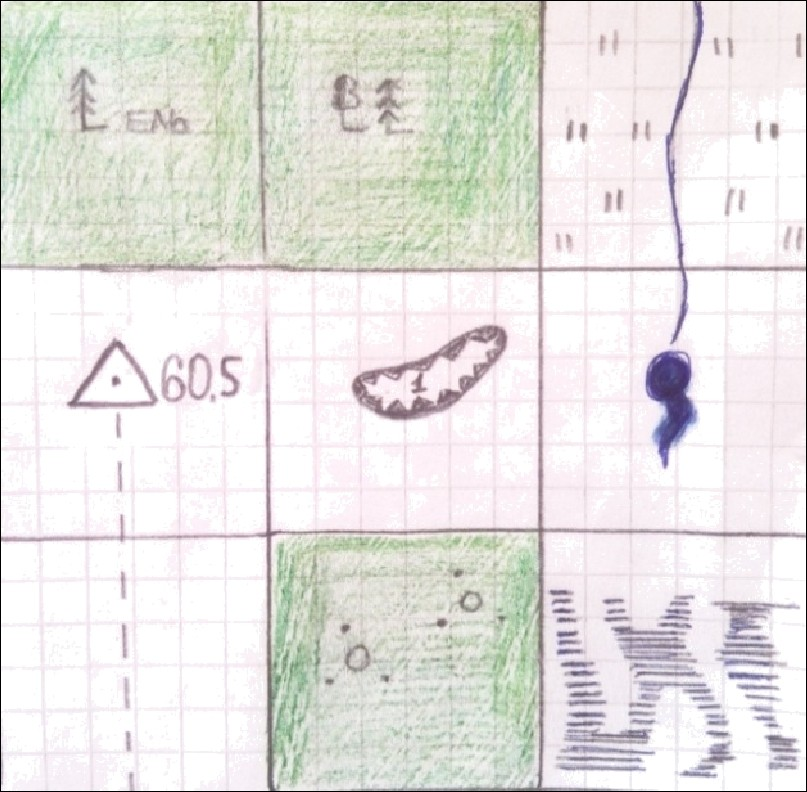 ЕЛЬ
60,5
1